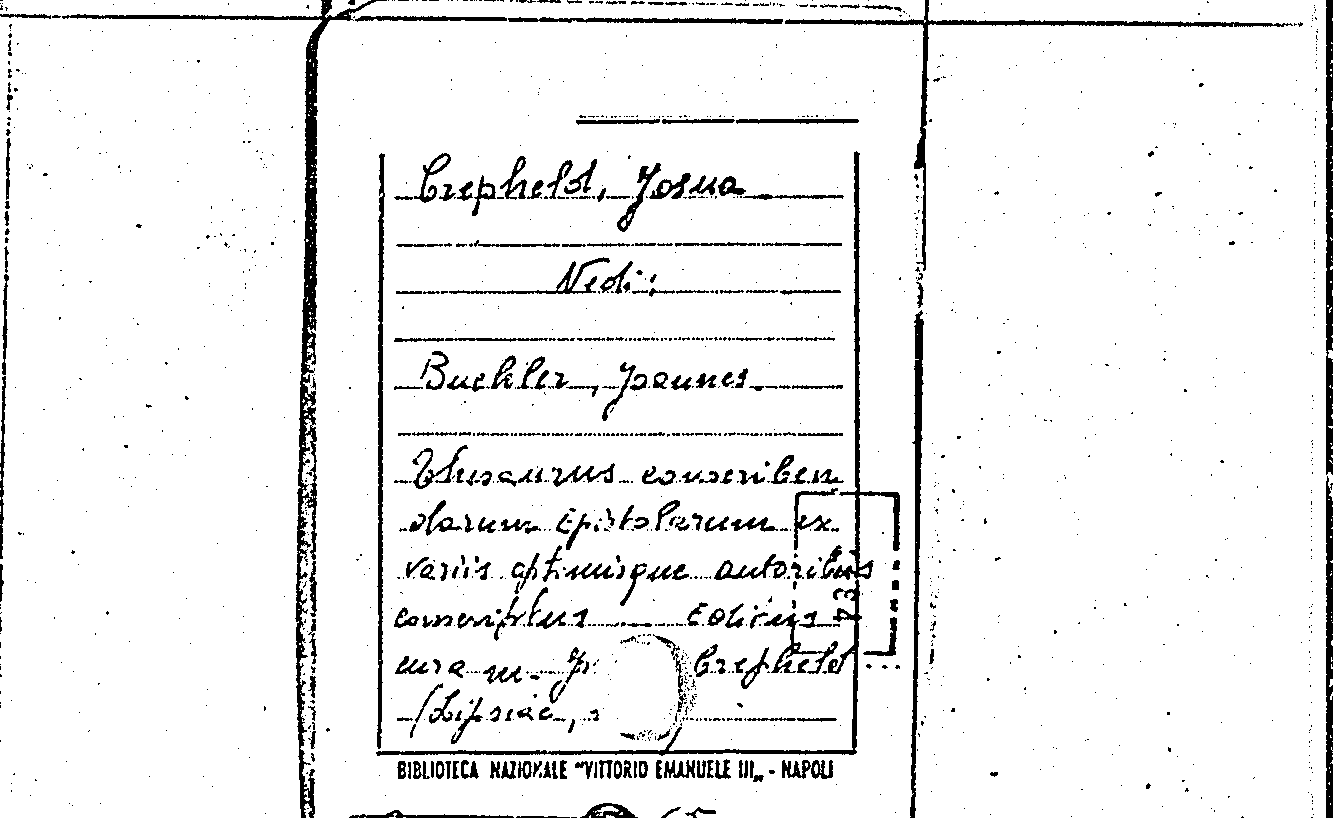 Crepheld, Josua
Vedi:
Buchler, Joannes.
Thesaurus conscriben
darum Epistolarum ex
variis optimisque autoribus
conscriptus ... Editus
cura M. Crepheld
(Lipsiae,
BIBLIOTECA NAZIONALE "VITTORIO EMANUELE III„ - NAPOLI